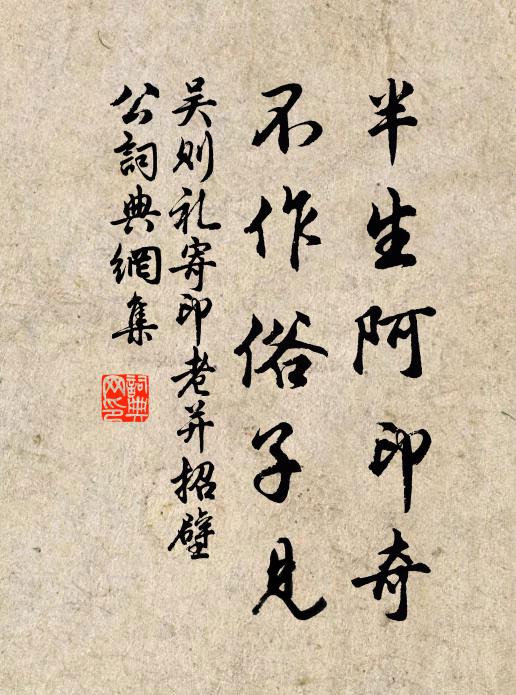 半生阿印奇
不作俗子見
吴则礼寄印老并招璧
公詞典網集
詞典網印